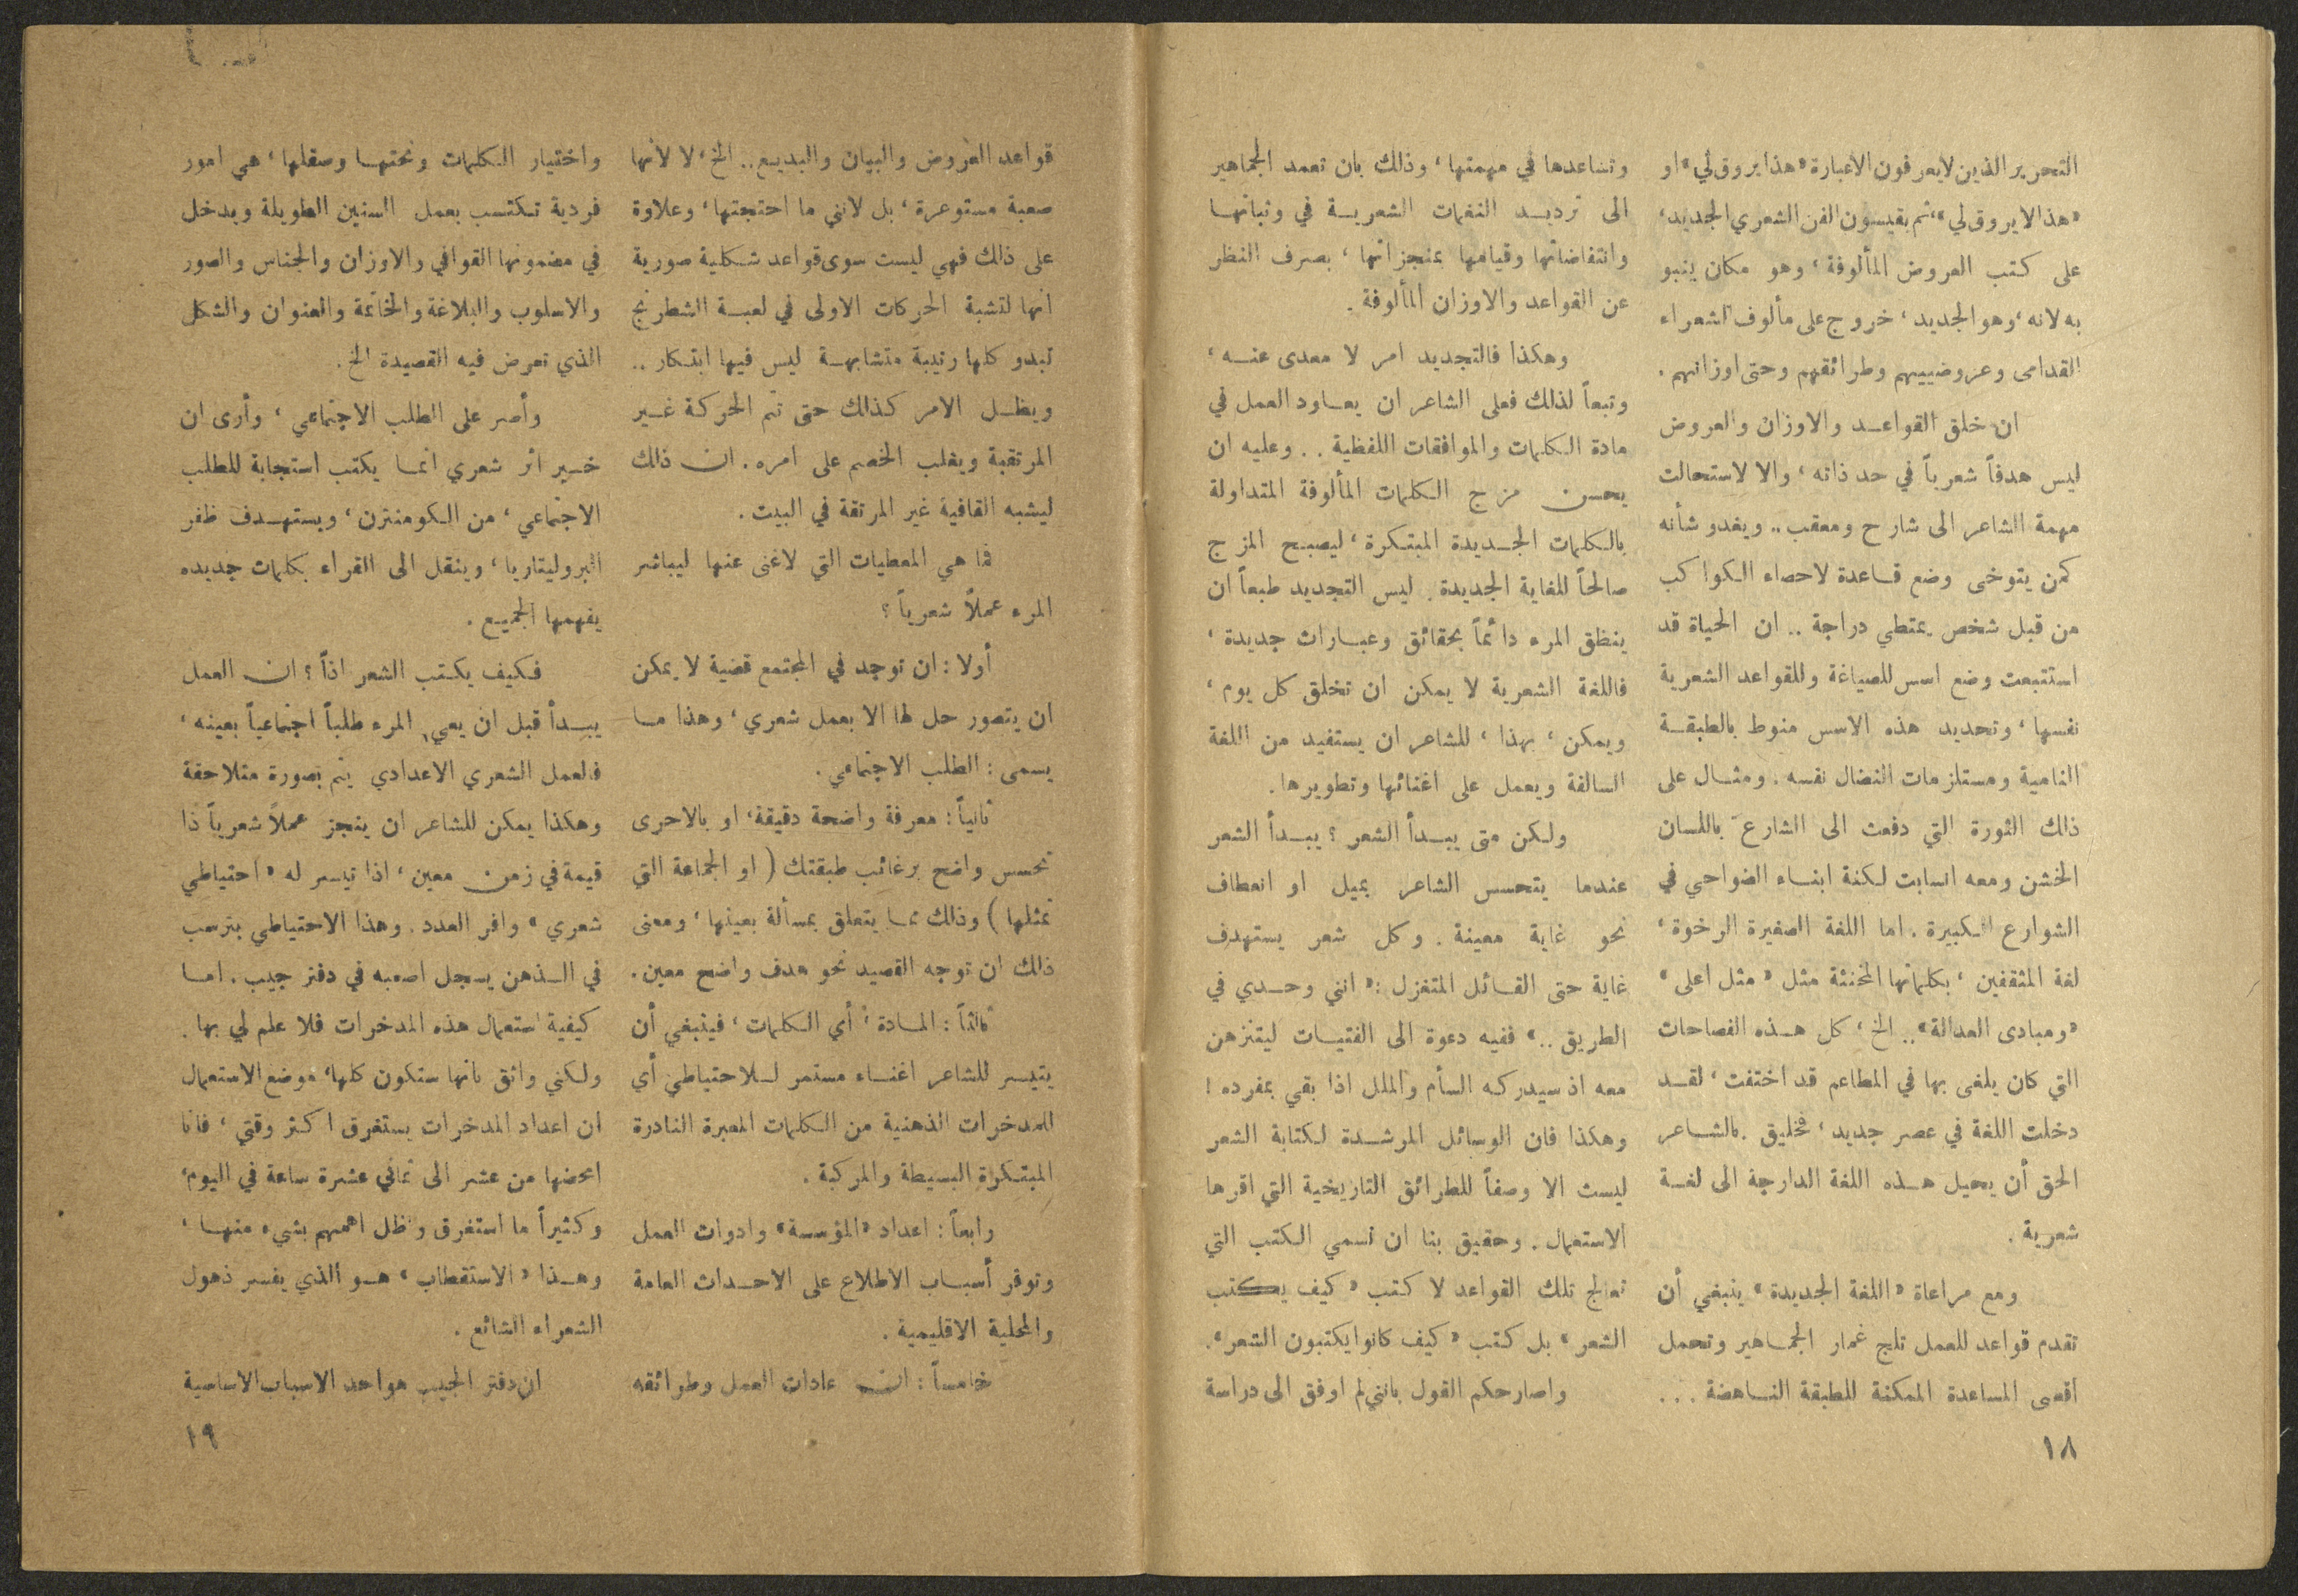 التحرير الذين لا يعرفون الا عبارة «هذا يروق لي» او
«هذا لا يروق لي» ثم يقيسون الفن الشعري الجديد،
على كتب العروض المألوفة، وهو مكان ينبو
به لانه، وهو الجديد، خروج على مألوف الشعراء
القدامى وعروضييهم وطرائقهم وحتى اوزانهم.
ان خلق القواعد والاوزان والعروض
ليس هدفاً شعرياً في حد ذاته، والا لاستحالت
مهمة الشاعر الى شارح ومعقب.. ويغدو شأنه
كمن يتوخى وضع قاعدة لاحصاء الكواكب
من قبل شخص يمتطي دراجة.. ان الحياة قد
استتبعت وضع اسس للصياغة وللقواعد الشعرية
نفسها، وتحديد هذه الاسس منوط بالطبقة
النامية ومستلزمات النضال نفسه. ومثال على
ذلك الثورة التي دفعت الى الشارع باللسان
الخشن ومعه انسابت لكنة ابناء الضواحي في
الشوارع الكبيرة. اما اللغة الصغيرة الرخوة،
لغة المثقفين، بكلماتها المخنثة مثل «مثل اعلى»
«ومبادى العدالة».. الخ، كل هذه الفصاحات
التي كان يلغى بها في المطاعم قد اختفت، لقد
دخلت اللغة في عصر جديد، فخليق بالشاعر
الحق أن يحيل هذه اللغة الدارجة الى لغة
شعرية.
ومع مراعاة «اللغة الجديدة» ينبغي أن
تقدم قواعد للعمل تلج غمار الجماهير وتحمل
اقصى المساعدة الممكنة للطبقة الناهضة ...
وتساعدها في مهمتها، وذلك بان تعمد الجماهير
الى ترديد النغمات الشعرية في وثباتها
وانتفاضاتها وقيامها بمنجزاتها، بصرف النظر
عن القواعد والاوزان المألوفة.
وهكذا فالتجديد امر لا معدى عنه،
وتبعاً لذلك فعلى الشاعر ان يعاود العمل في
مادة الكلمات والموافقات اللفظية.. وعليه ان
يحسن مزج الكلمات المألوفة المتداولة
بالكلمات الجديدة المبتكرة، ليصبح المزج
صالحاً للغاية الجديدة. ليس التجديد طبعاً ان
ينطق المرء دائماً بحقائق وعبارات جديدة،
فاللغة الشعرية لا يمكن ان تخلق كل يوم،
ويمكن، بهذا، للشاعر ان يستفيد من اللغة
السالفة ويعمل على اغنائها وتطويرها.
ولكن متى يبدأ الشعر؟ يبدأ الشعر
عندما يتحسس الشاعر بميل او انعطاف
نحو غاية معينة. وكل شعر يستهدف
غاية حتى القائل المتغزل: «انني وحدي في
الطريق..» ففيه دعوة الى الفتيات ليتنزهن
معه اذ سيدركه السأم والملل اذا بقي بمفرده!
وهكذا فان الوسائل المرشدة لكتابة الشعر
ليست الا وصفاً للطرائق التاريخية التي اقرها
الاستعمال. وحقيق بنا ان نسمي الكتب التي
تعالج تلك القواعد لا كتب «كيف يكتب
الشعر» بل كتب «كيف كانوا يكتبون الشعر».
واصارحكم القول بانني لم اوفق الى دراسة
١٨
قواعد العروض والبيان والبديع.. الخ، لا لانها
صعبة مستوعرة، بل لانني ما احتجتها، وعلاوة
على ذلك فهي ليست سوى قواعد شكلية صورية
انها لتشبة الحركات الاولى في لعبة الشطرنج
تبدو كلها رتيبة متشابهة ليس فيها ابتكار..
ويظل الامر كذلك حتى تتم الحركة غير
المرتقبة ويغلب الخصم على امره. ان ذلك
ليشبه القافية غير المرتقة في البيت.
فما هي المعطيات التي لاغنى عنها ليباشر
المرء عملاً شعرياً؟
أولا: ان توجد في المجتمع قضية لا يمكن
ان يتصور حل لها الا بعمل شعري، وهذا ما
يسمى: الطلب الاجتماعي.
ثانياً: معرفة واضحة دقيقة، او بالاحرى
تحسس واضح برغائب طبقتك (او الجماعة التي
تمثلها) وذلك مما يتعلق بمسألة بعينها، ومعنى
ذلك ان توجه القصيد نحو هدف واضح معين.
ثالثاً: المادة، أي الكلمات، فينبغي أن
يتيسر للشاعر اغناء مستمر للاحتياطي أي
للمدخرات الذهنية من الكلمات المعبرة النادرة
المبتكرة البسيطة والمركبة.
رابعاً: اعداد «المؤسسة» وادوات العمل
وتوفر أسباب الاطلاع على الاحداث العامة
والمحلية الاقليمية.
خامساً: ان عادات العمل وطرائقه
واختيار الكلمات ونحتها وصقلها، هي امور
فردية تكتسب بعمل السنين الطويلة ويدخل
في مضمونها القوافي والاوزان والجناس والصور
والاسلوب والبلاغة والخاتمة والعنوان والشكل
الذي تعرض فيه القصيدة الخ.
وأصر على الطلب الاجتماعي، وأرى ان
خير اثر شعري انما يكتب استجابة للطلب
الاجتماعي، من الكومنترن، ويستهدف ظفر
البروليتاريا، وينقل الى القراء بكلمات جديده
يفهمها الجميع.
فكيف يكتب الشعر اذاً؟ ان العمل
يبدأ قبل ان يعي المرء طلباً اجتماعياً بعينه،
فالعمل الشعري الاعدادي يتم بصورة متلاحقة
وهكذا يمكن للشاعر ان ينجز عملاً شعرياً ذا
قيمة في زمن معين، اذا تيسر له «احتياطي
شعري» وافر العدد. وهذا الاحتياطي يترسب
في الذهن يسجل اصعبه في دفتر جيب. اما
كيفية استعمال هذه المدخرات فلا علم لي بها.
ولكني واثق بانها ستكون كلها، موضع الاستعمال
ان اعداد المدخرات يستغرق اكثر وقتي، فانا
امحضها من عشر الى ثماني عشرة ساعة في اليوم،
وكثيراً ما استغرق واظل اهمهم بشيء منها،
وهذا «الاستقطاب» هو الذي يفسر ذهول
الشعراء الشائع.
ان دفتر الجيب هو احد الاسباب الاساسية
١٩